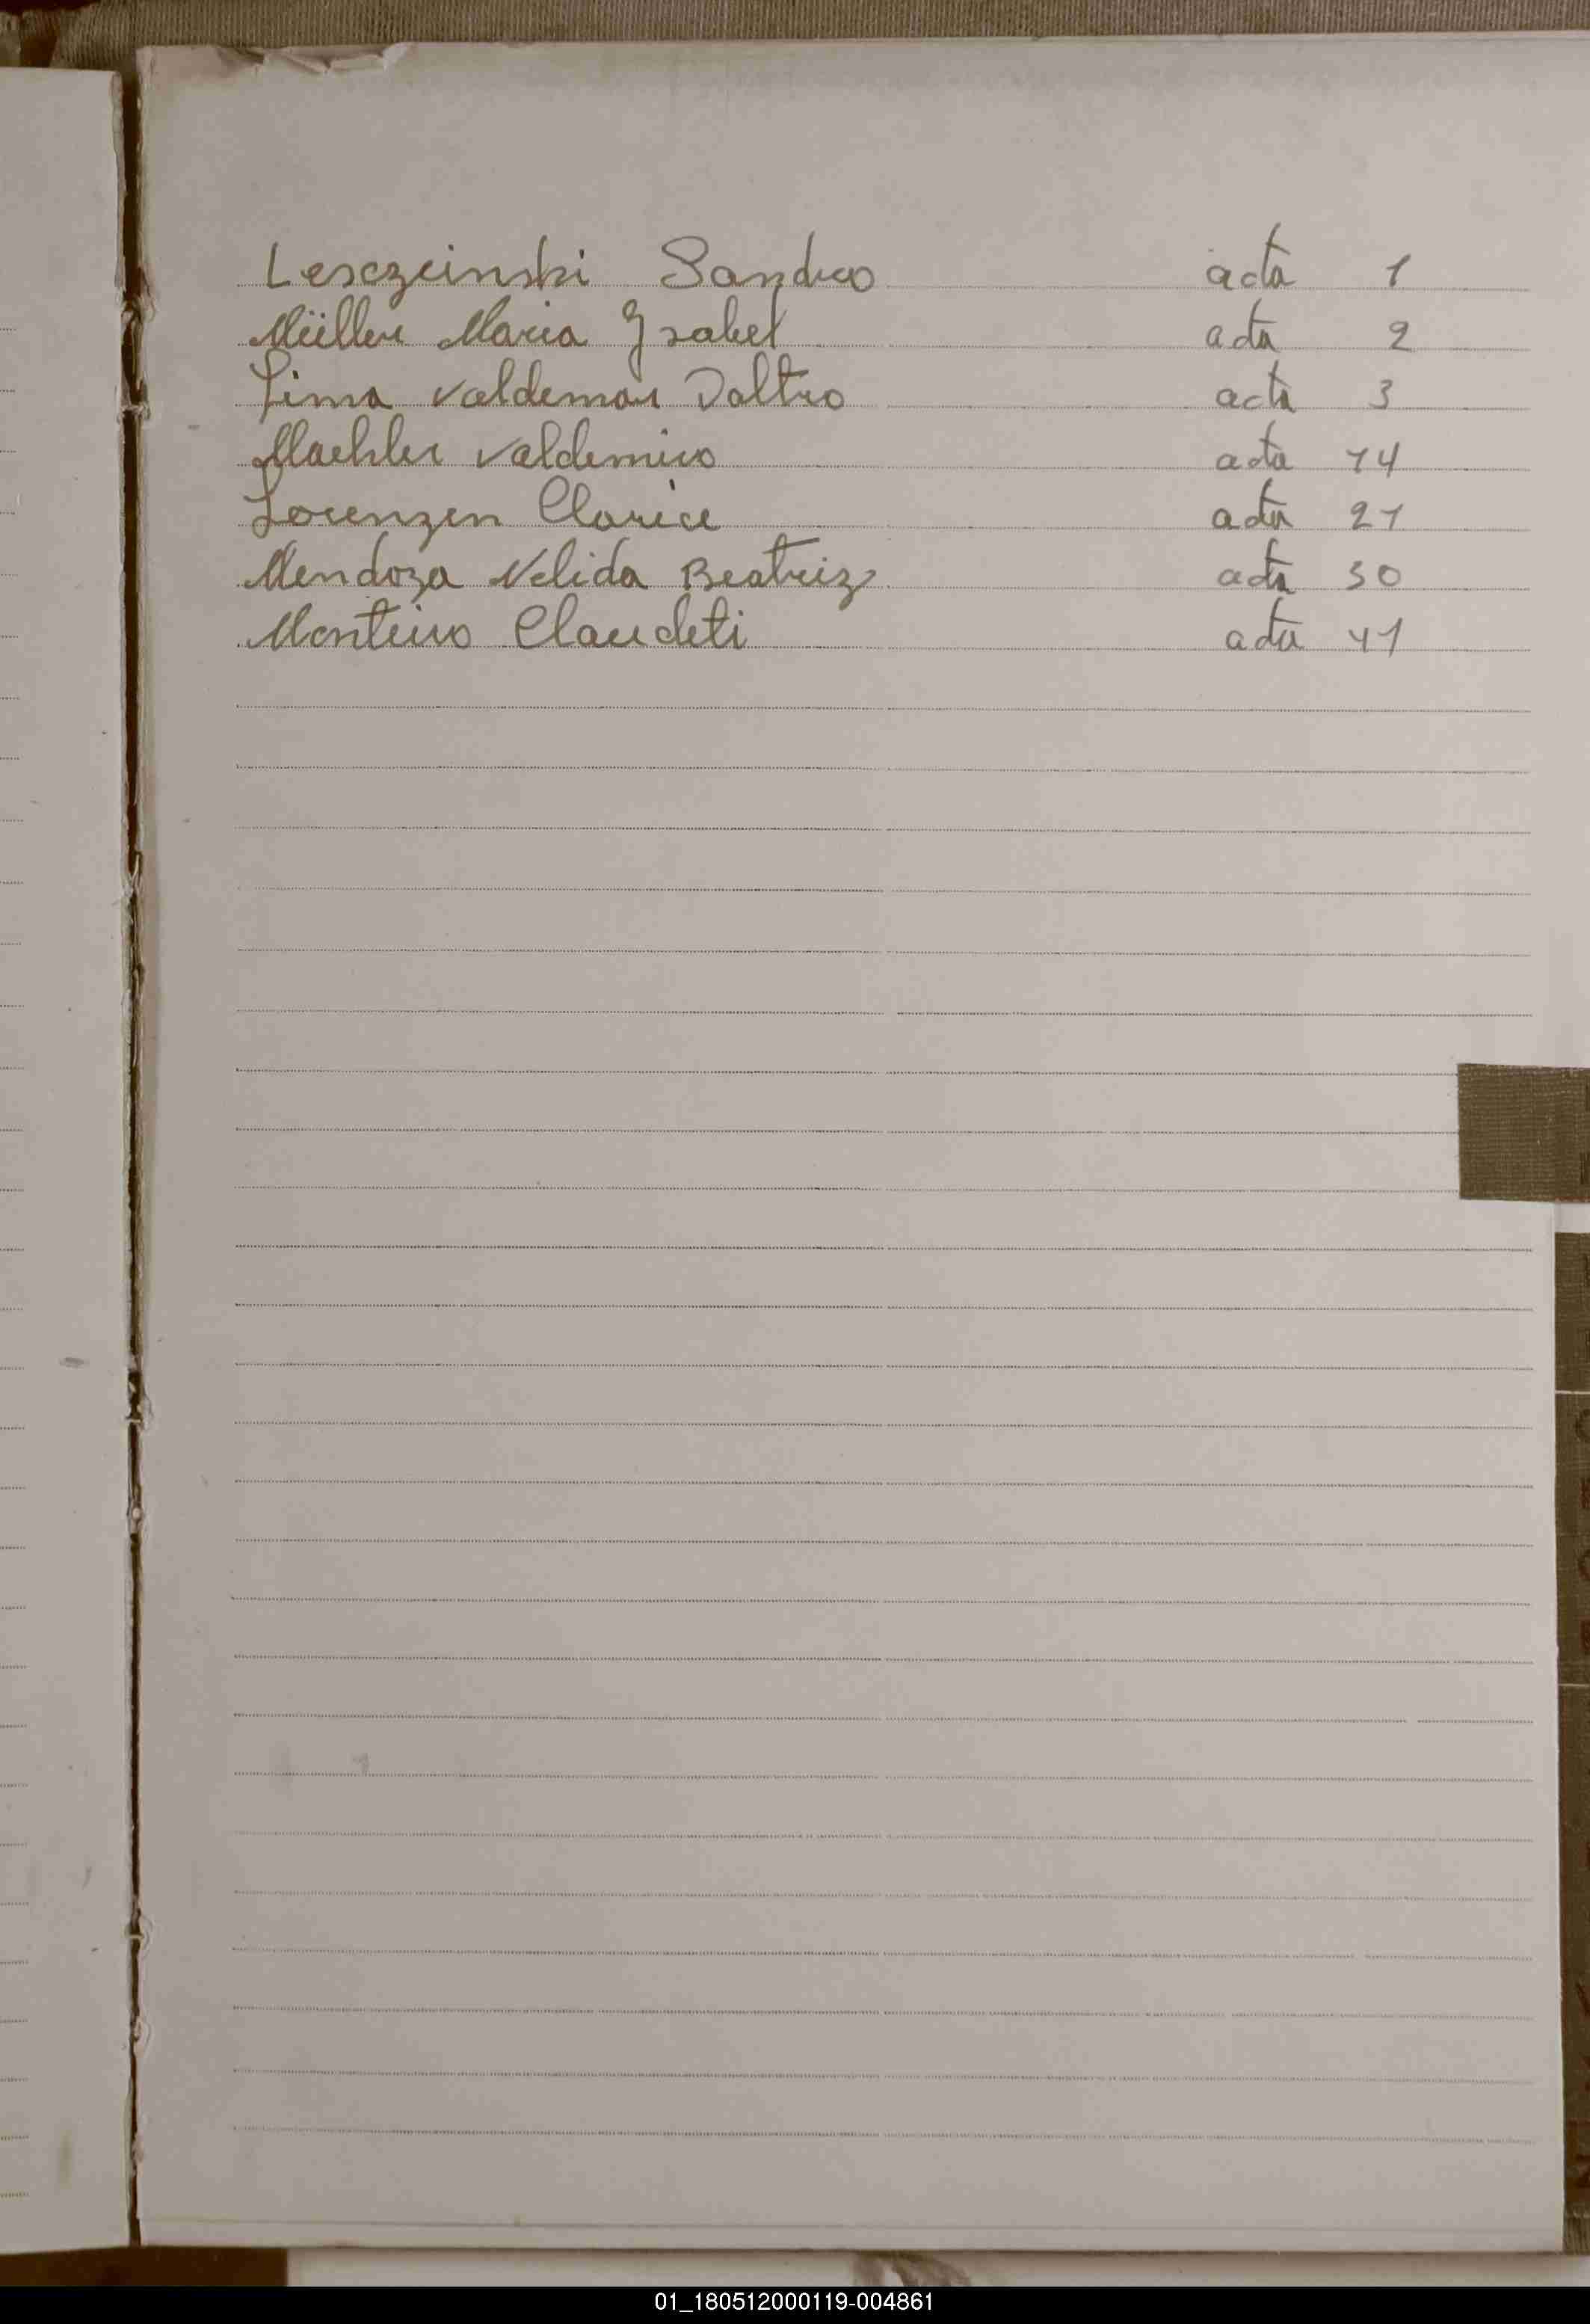 Lesczeinski Sandro acta 1
Müller Maria Ysabel acta 2
Lima Valdemar Daltro acta 3
Maehler Valdemiro acta 14
Lorenzen Clarice acta 21
Mendoza Nelida Beatriz acta 30
Monteiro Claudeti acta 41
01_180512000119-004861